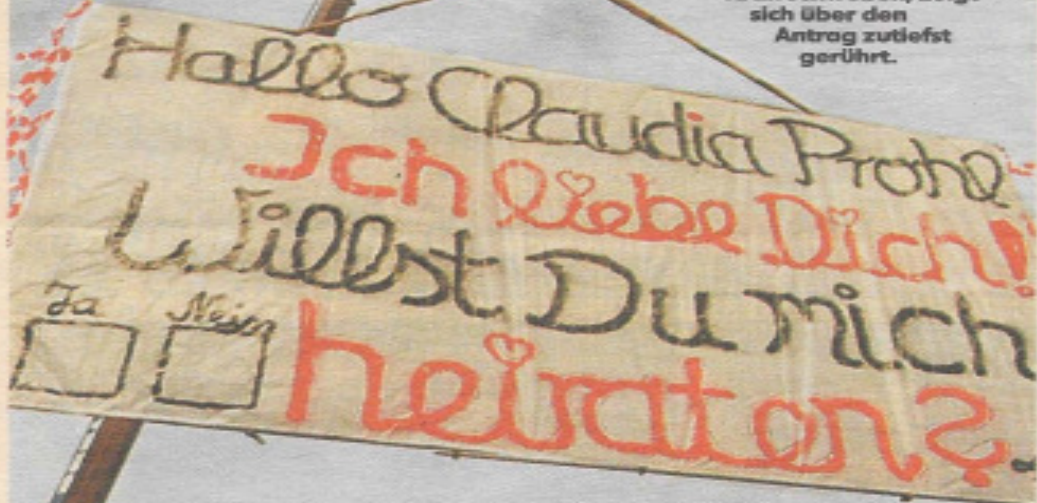 sich über den
Antrag zutiefst
gerührt.
Hallo Claudia Prohl
Ich liebe Dich!
Willst Du mich
Ja Nein
heiraten?